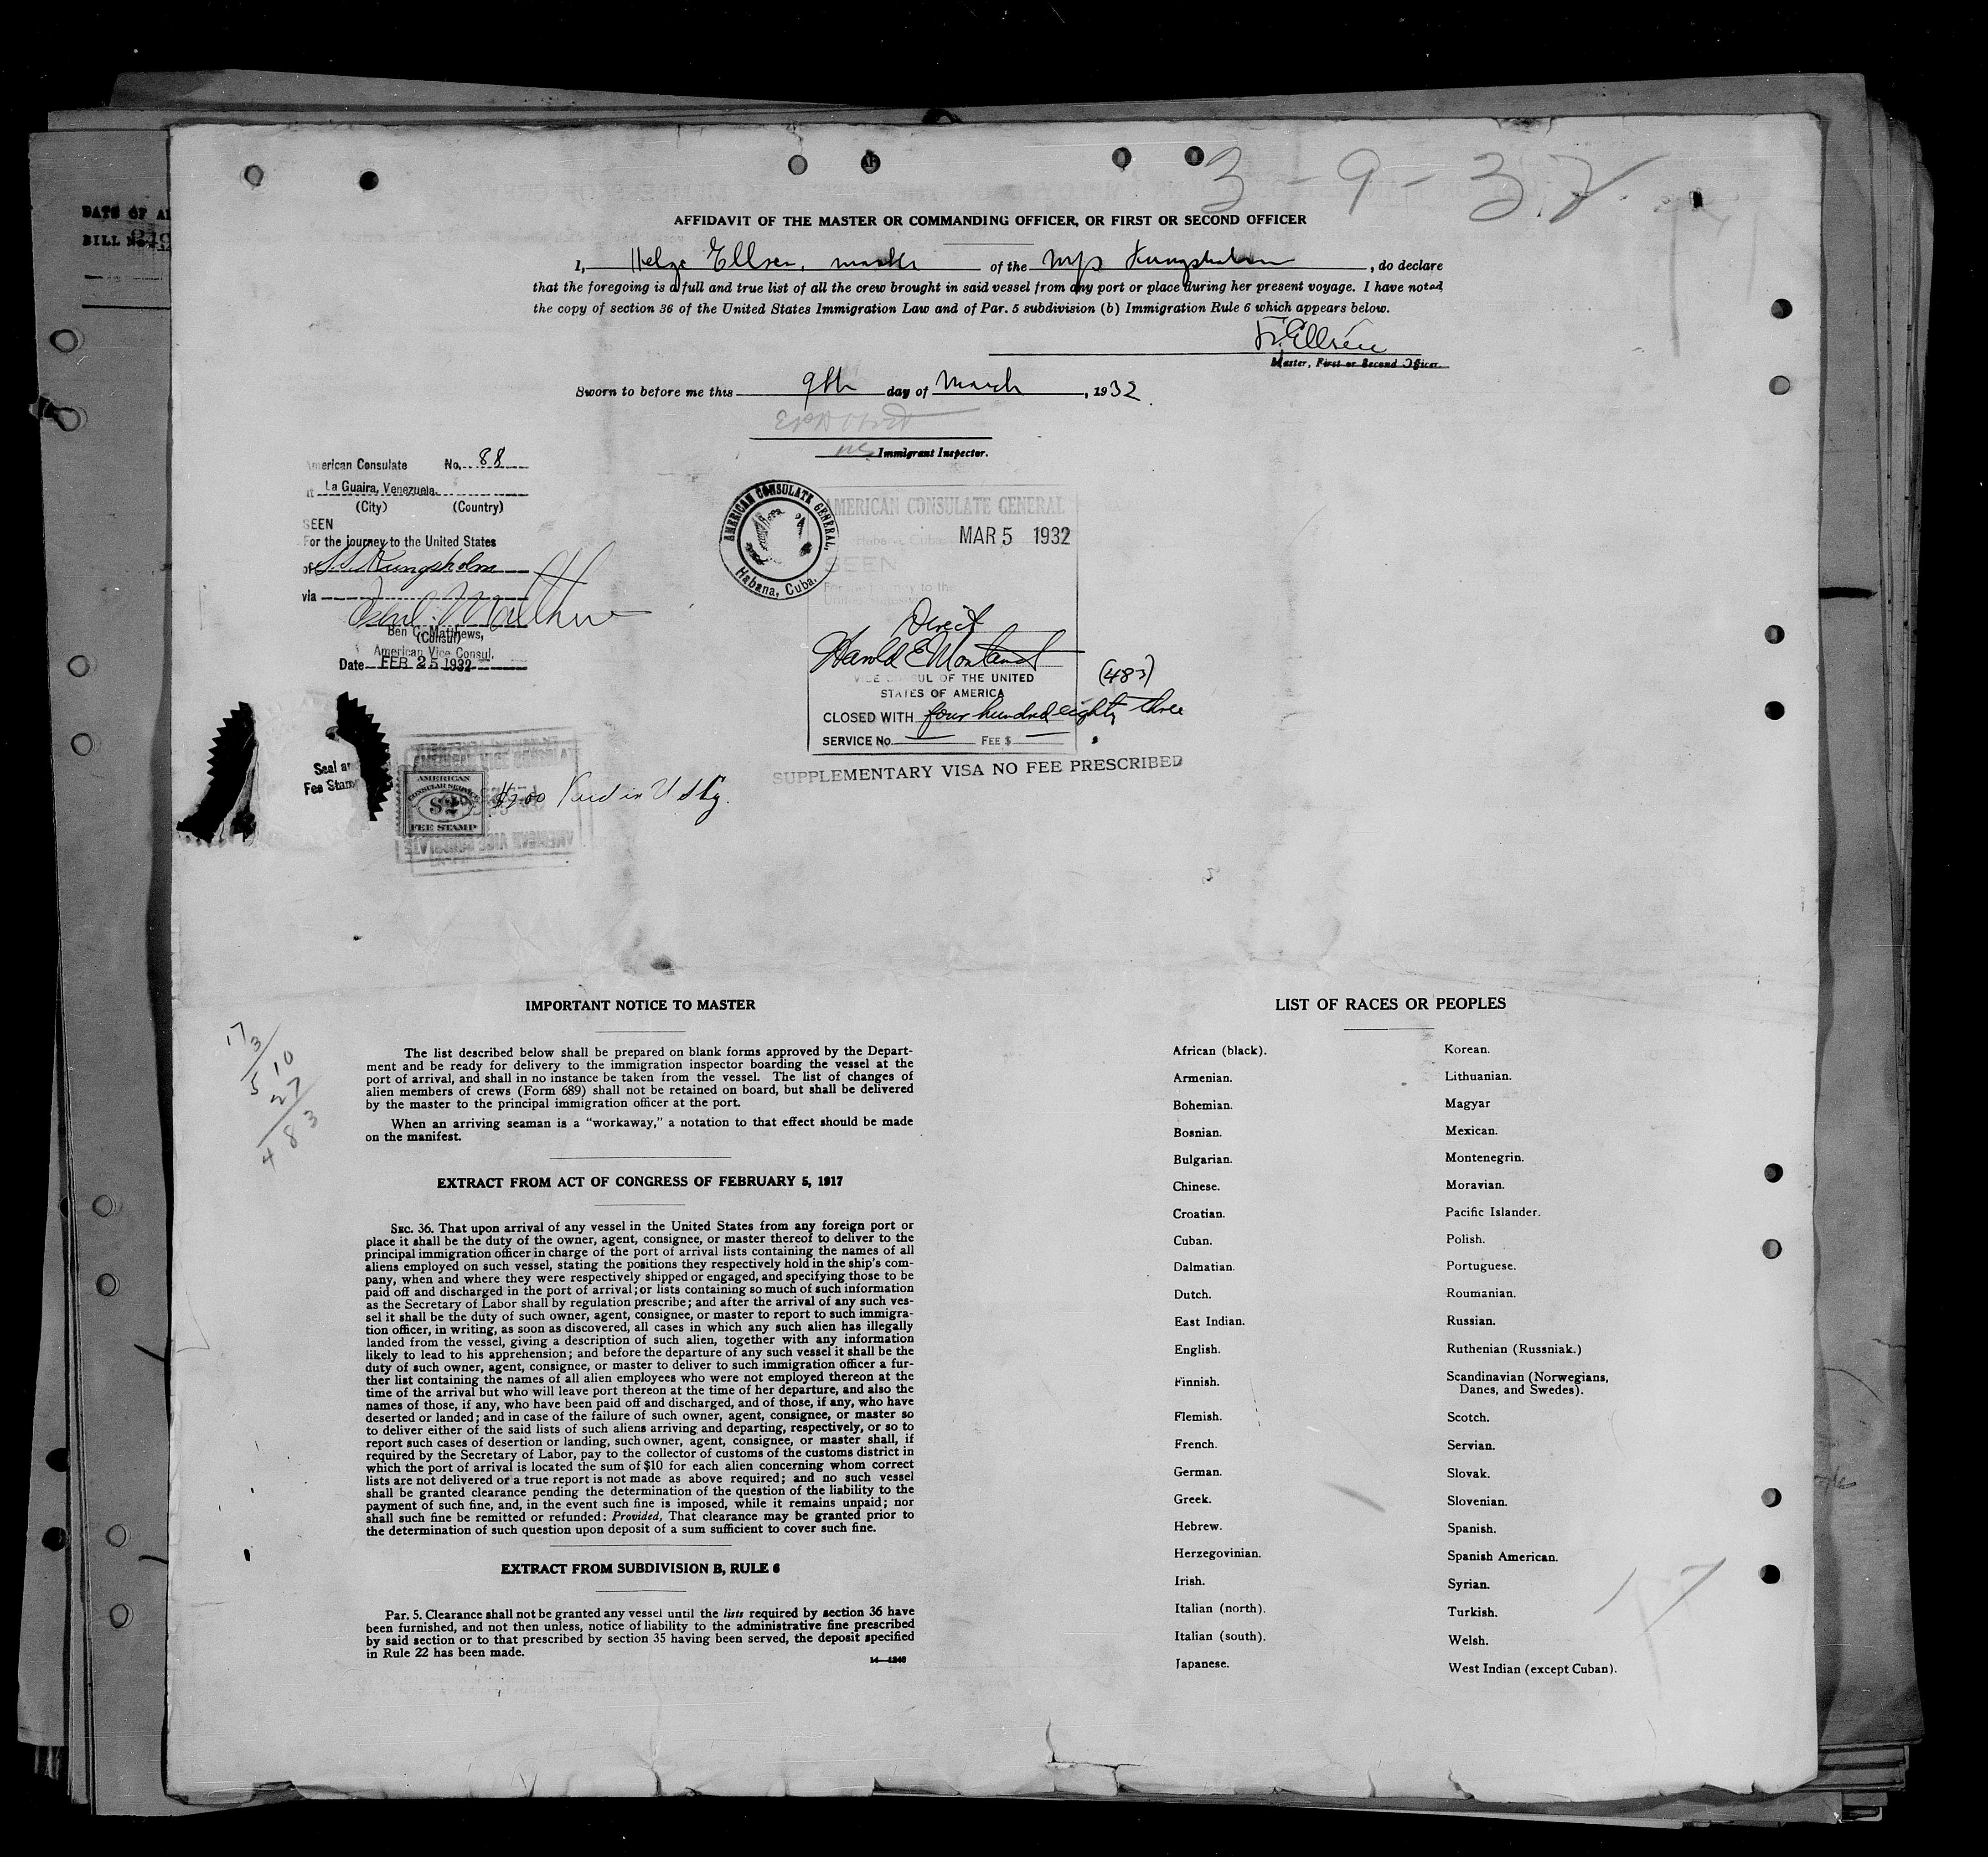 3 - 9 - 32
DATE OF
BILL No.
AFFIDAVIT OF THE MASTER OR COMMANDING OFFICER, OR FIRST OR SECOND OFFICER
I, Helge Ellsen, master of the M/S Kungsholm, do declare
that the foregoing is a full and true list of all the crew brought in said vessel from any port or place during her present voyage. I have noted
the copy of section 36 of the United States Immigration Law and of Par. 5 subdivision (b) Immigration Rule 6 which appears below.
H. Ellsén
Master, First or Second Officer.
Sworn to before me this 9th day of March, 1932.
Immigrant Inspector.
American Consulate No. 88
at La Guaira, Venezuela.
(City) (Country)
SEEN
For the journey to the United States
of S.S. Kungsholm
via
Ben C. Matthews,
(Consul)
American Vice Consul.
Date FEB 25 1932
Seal
Fee Stamp
AMERICAN
CONSULAR SERVICE
$2
FEE STAMP
$2.00 Paid in
AMERICAN CONSULATE GENERAL,
Habana, Cuba.
AMERICAN CONSULATE GENERAL
Habana, Cuba
MAR 5 1932
SEEN
For the journey to the
United States
Direct
VICE CONSUL OF THE UNITED
STATES OF AMERICA
(483)
CLOSED WITH four hundred eighty three
SERVICE No. FEE $
SUPPLEMENTARY VISA NO FEE PRESCRIBED
173
10
5
27
483
IMPORTANT NOTICE TO MASTER
The list described below shall be prepared on blank forms approved by the Depart-
ment and be ready for delivery to the immigration inspector boarding the vessel at the
port of arrival, and shall in no instance be taken from the vessel. The list of changes of
alien members of crews (Form 689) shall not be retained on board, but shall be delivered
by the master to the principal immigration officer at the port.
When an arriving seaman is a "workaway," a notation to that effect should be made
on the manifest.
EXTRACT FROM ACT OF CONGRESS OF FEBRUARY 5, 1917
SEC. 36. That upon arrival of any vessel in the United States from any foreign port or
place it shall be the duty of the owner, agent, consignee, or master thereof to deliver to the
principal immigration officer in charge of the port of arrival lists containing the names of all
aliens employed on such vessel, stating the positions they respectively hold in the ship's com-
pany, when and where they were respectively shipped or engaged, and specifying those to be
paid off and discharged in the port of arrival; or lists containing so much of such information
as the Secretary of Labor shall by regulation prescribe; and after the arrival of any such ves-
sel it shall be the duty of such owner, agent, consignee, or master to report to such immigra-
tion officer, in writing, as soon as discovered, all cases in which any such alien has illegally
landed from the vessel, giving a description of such alien, together with any information
likely to lead to his apprehension; and before the departure of any such vessel it shall be the
duty of such owner, agent, consignee, or master to deliver to such immigration officer a fur-
ther list containing the names of all alien employees who were not employed thereon at the
time of the arrival but who will leave port thereon at the time of her departure, and also the
names of those, if any, who have been paid off and discharged, and of those, if any, who have
deserted or landed; and in case of the failure of such owner, agent, consignee, or master so
to deliver either of the said lists of such aliens arriving and departing, respectively, or so to
report such cases of desertion or landing, such owner, agent, consignee, or master shall, if
required by the Secretary of Labor, pay to the collector of customs of the customs district in
which the port of arrival is located the sum of $10 for each alien concerning whom correct
lists are not delivered or a true report is not made as above required; and no such vessel
shall be granted clearance pending the determination of the question of the liability to the
payment of such fine, and, in the event such fine is imposed, while it remains unpaid; nor
shall such fine be remitted or refunded: Provided, That clearance may be granted prior to
the determination of such question upon deposit of a sum sufficient to cover such fine.
EXTRACT FROM SUBDIVISION B, RULE 6
Par. 5. Clearance shall not be granted any vessel until the lists required by section 36 have
been furnished, and not then unless, notice of liability to the administrative fine prescribed
by said section or to that prescribed by section 35 having been served, the deposit specified
in Rule 22 has been made.
14—1240
LIST OF RACES OR PEOPLES
African (black).
Armenian.
Bohemian.
Bosnian.
Bulgarian.
Chinese.
Croatian.
Cuban.
Dalmatian.
Dutch.
East Indian.
English.
Finnish.
Flemish.
French.
German.
Greek.
Hebrew.
Herzegovinian.
Irish.
Italian (north).
Italian (south).
Japanese.
Korean.
Lithuanian.
Magyar
Mexican.
Montenegrin.
Moravian.
Pacific Islander.
Polish.
Portuguese.
Roumanian.
Russian.
Ruthenian (Russniak.)
Scandinavian (Norwegians,
Danes, and Swedes).
Scotch.
Servian.
Slovak.
Slovenian.
Spanish.
Spanish American.
Syrian.
Turkish.
Welsh.
West Indian (except Cuban).
17